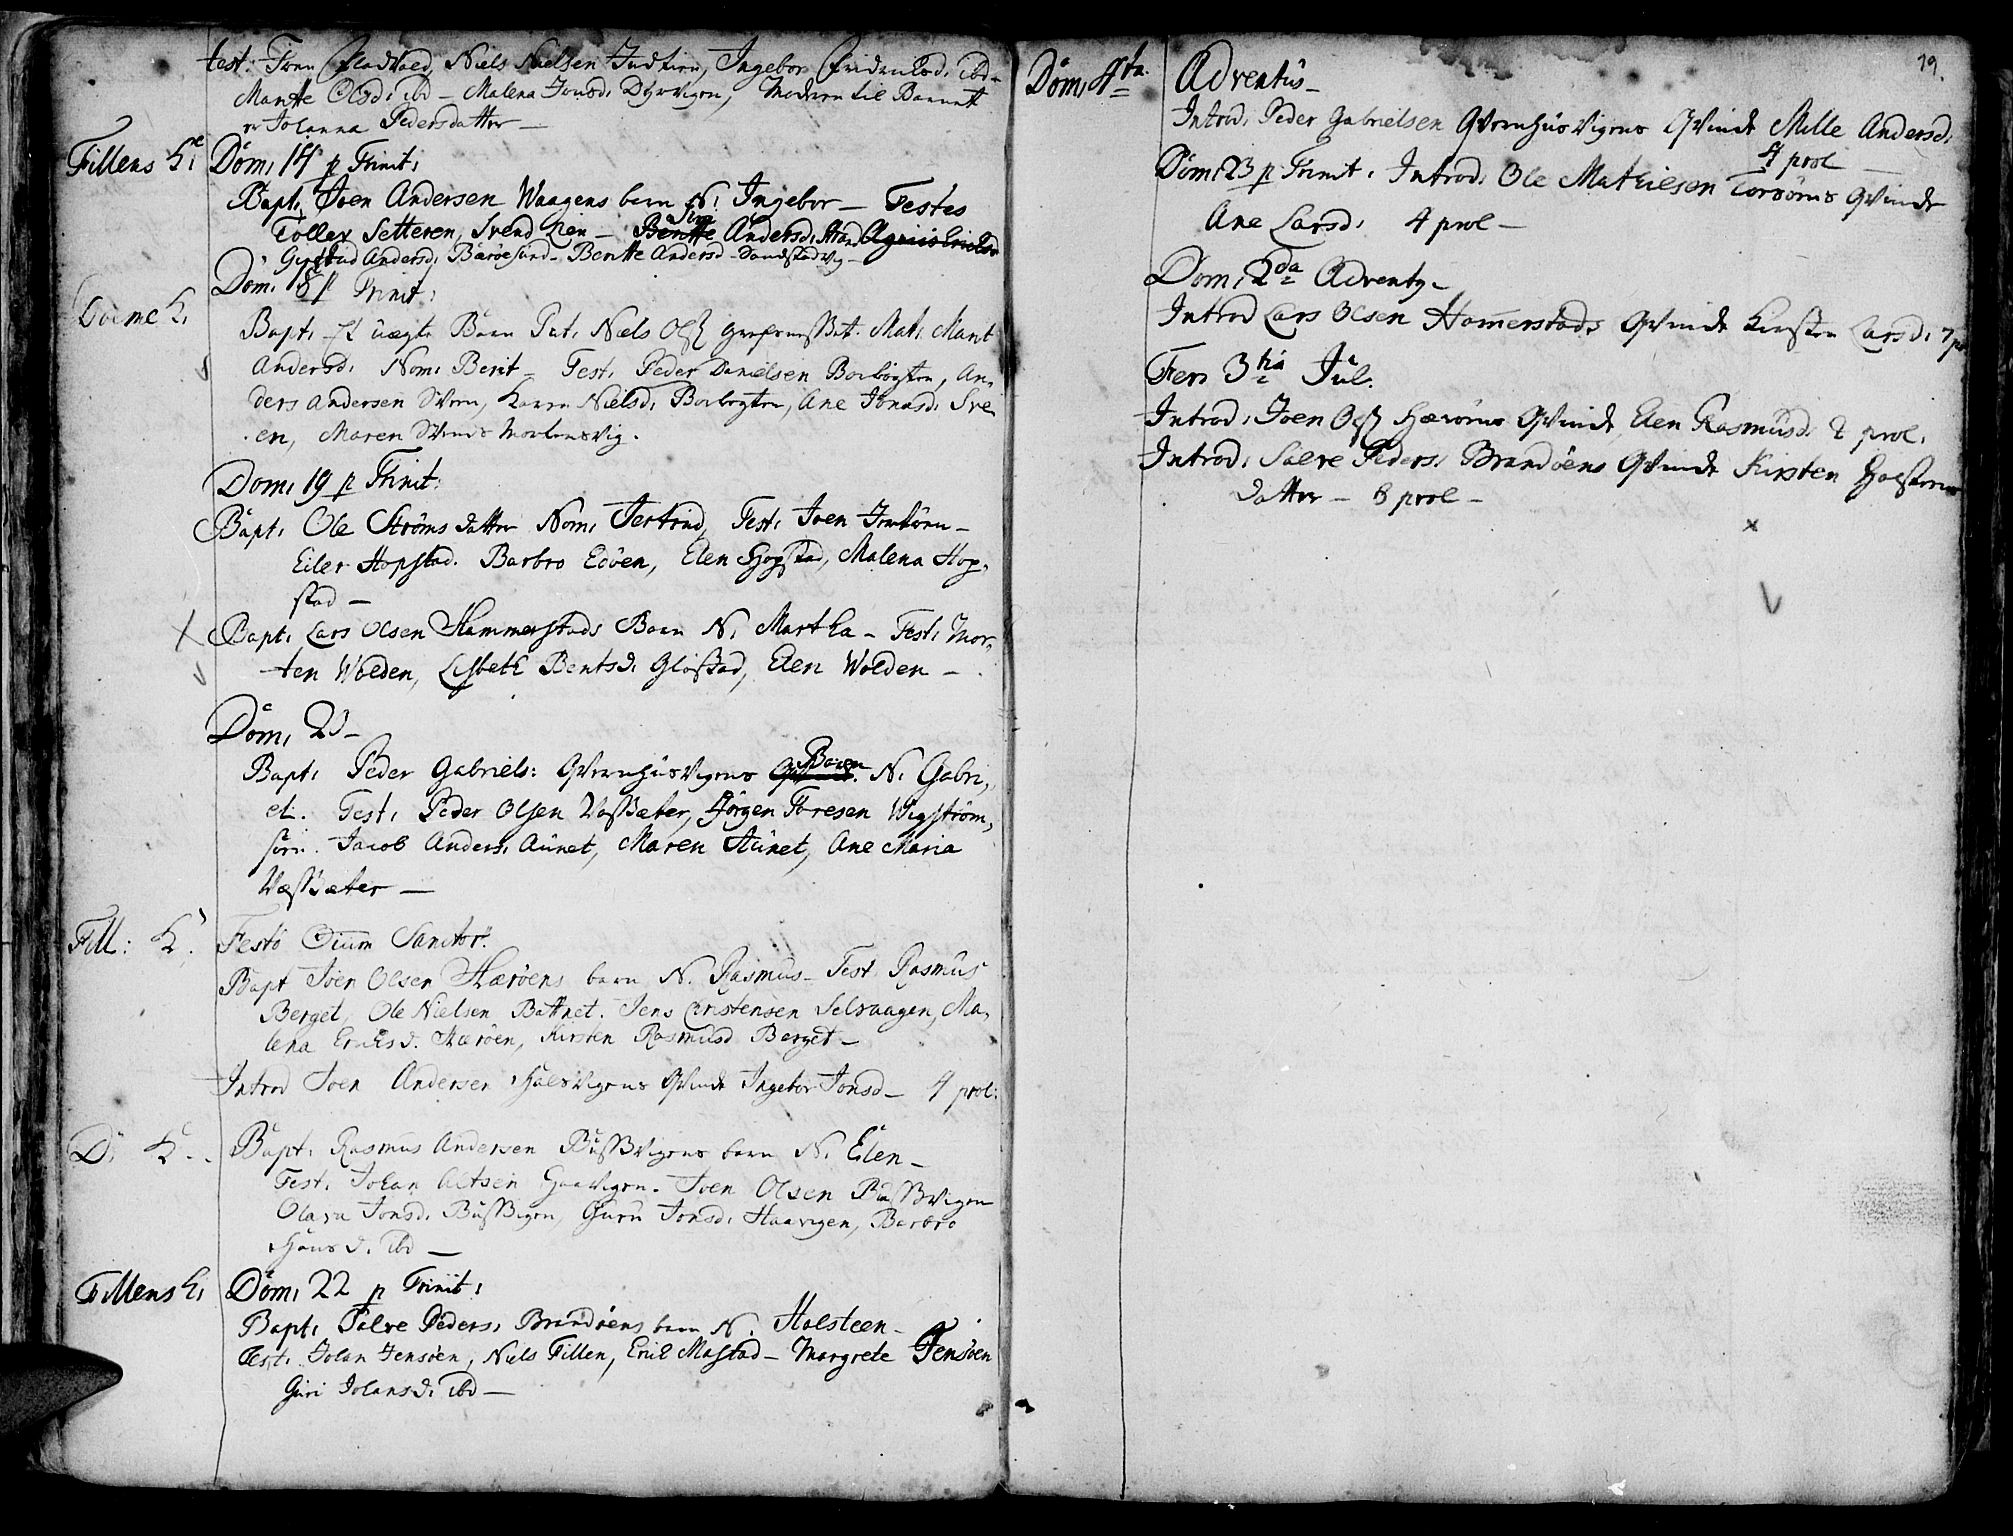 test. Joen Fladvold, Niels Nielsen Indtien, Ingebor ibd
Marite Olsd. ibd - Malena Jonsd. Dyrvigen, Moderen til Barnet
er Johanna Pedersdatter -
Fillens K. Dom. 14 p Trinit.
Bapt. Joen Andersen Vaagens barn N. Ingebor - Testes
Siri
Toller Setteren, Svend Lien - Beritte Andersd. Strand
Giertrud Andersd. Bæröesund - Beritte Andersd - Sandstadvig -
Dom. 18 p Trinit.
Dolme K.
Bapt. et uægte Barn Pat. Niels Ols. Mat. Marit
Andersd. Nom. Berit - Test. Peder Danielsen Borbogten, An-
ders Andersen Sveen, Karen Nielsd. Borbogten, Ane Jonasd. Sve
en, Maren Svends Morkensvig.
Dom. 19 p Trinit:
Bapt. Ole Ströms datter Nom. Jertrud, Test. Joen
Eiler Hopstad. Barbro Edöen, Elen Hopstad, Malena Hop-
stad -
Bapt. Lars Olsen Hammerstads Barn N. Martha - Test. Mor-
ten Wolden, Lisbeth Bentsd. Glöstad, Elen Wolden -
Dom. 20 -
Barn
Bapt. Peder Gabriels: Qvernhusvigens Qvinde. N. Gabri-
el. Test. Peder Olsen Vassæter, Jörgen Toresen Wigström-
Jacob Anders. Aunet, Maren Aunet, Ane Maria
Vassæter -
Fill: K. Festo Oium Sanctor.
Bapt Joen Olsen Hæröens barn N. Rasmus - Test Rasmus
Berget, Ole Nielsen Battnet. Jens Christensen Selvaagen, Ma-
lena Eriksd. Hæröen, Kirsten Rasmusd Berget -
Introd Joen Andersen Qvinde Ingebor Jonsd - 4 prol:
D. K. Bapt. Rasmus Andersen Bussvigens barn N. Elen -
Test. Johan Haavigen. Joen Olsen Bussvigen
Olava Jonsd. Bussvigen, Guru Jonsd. Haavigen, Barbro
Hansd. ibd -
Fillens K. Dom. 22 p Trinit:
Bapt. Salve Peders. Brandöens barn N. Holsteen -
Test. Johan Jensöen, Niels Fillen, Erik Mastad - Margrete Jensöen
Guri Johansd. ibd -
19.
Dom. 4ta Adventus -
Introd. Peder Gabrielsen Qvernhusvigens Qvinde Mille Andersd.
4 prol
Dom. 23 p Trinit. Introd. Ole Mathiesen Qvinde
Ane Larsd. 4 prol -
Dom. 2da Advent9 -
Introd Lars Olsen Hamerstads Qvinde Kirsten Larsd. 7 pr
Fer. 3tia Jul.
Introd. Joen Ols. Hæröens Qvinde Elen Rasmusd. 2 prol.
Introd. Salve Peders. Brandöens Qvinde Kirsten Holstens
datter - 8 prol -